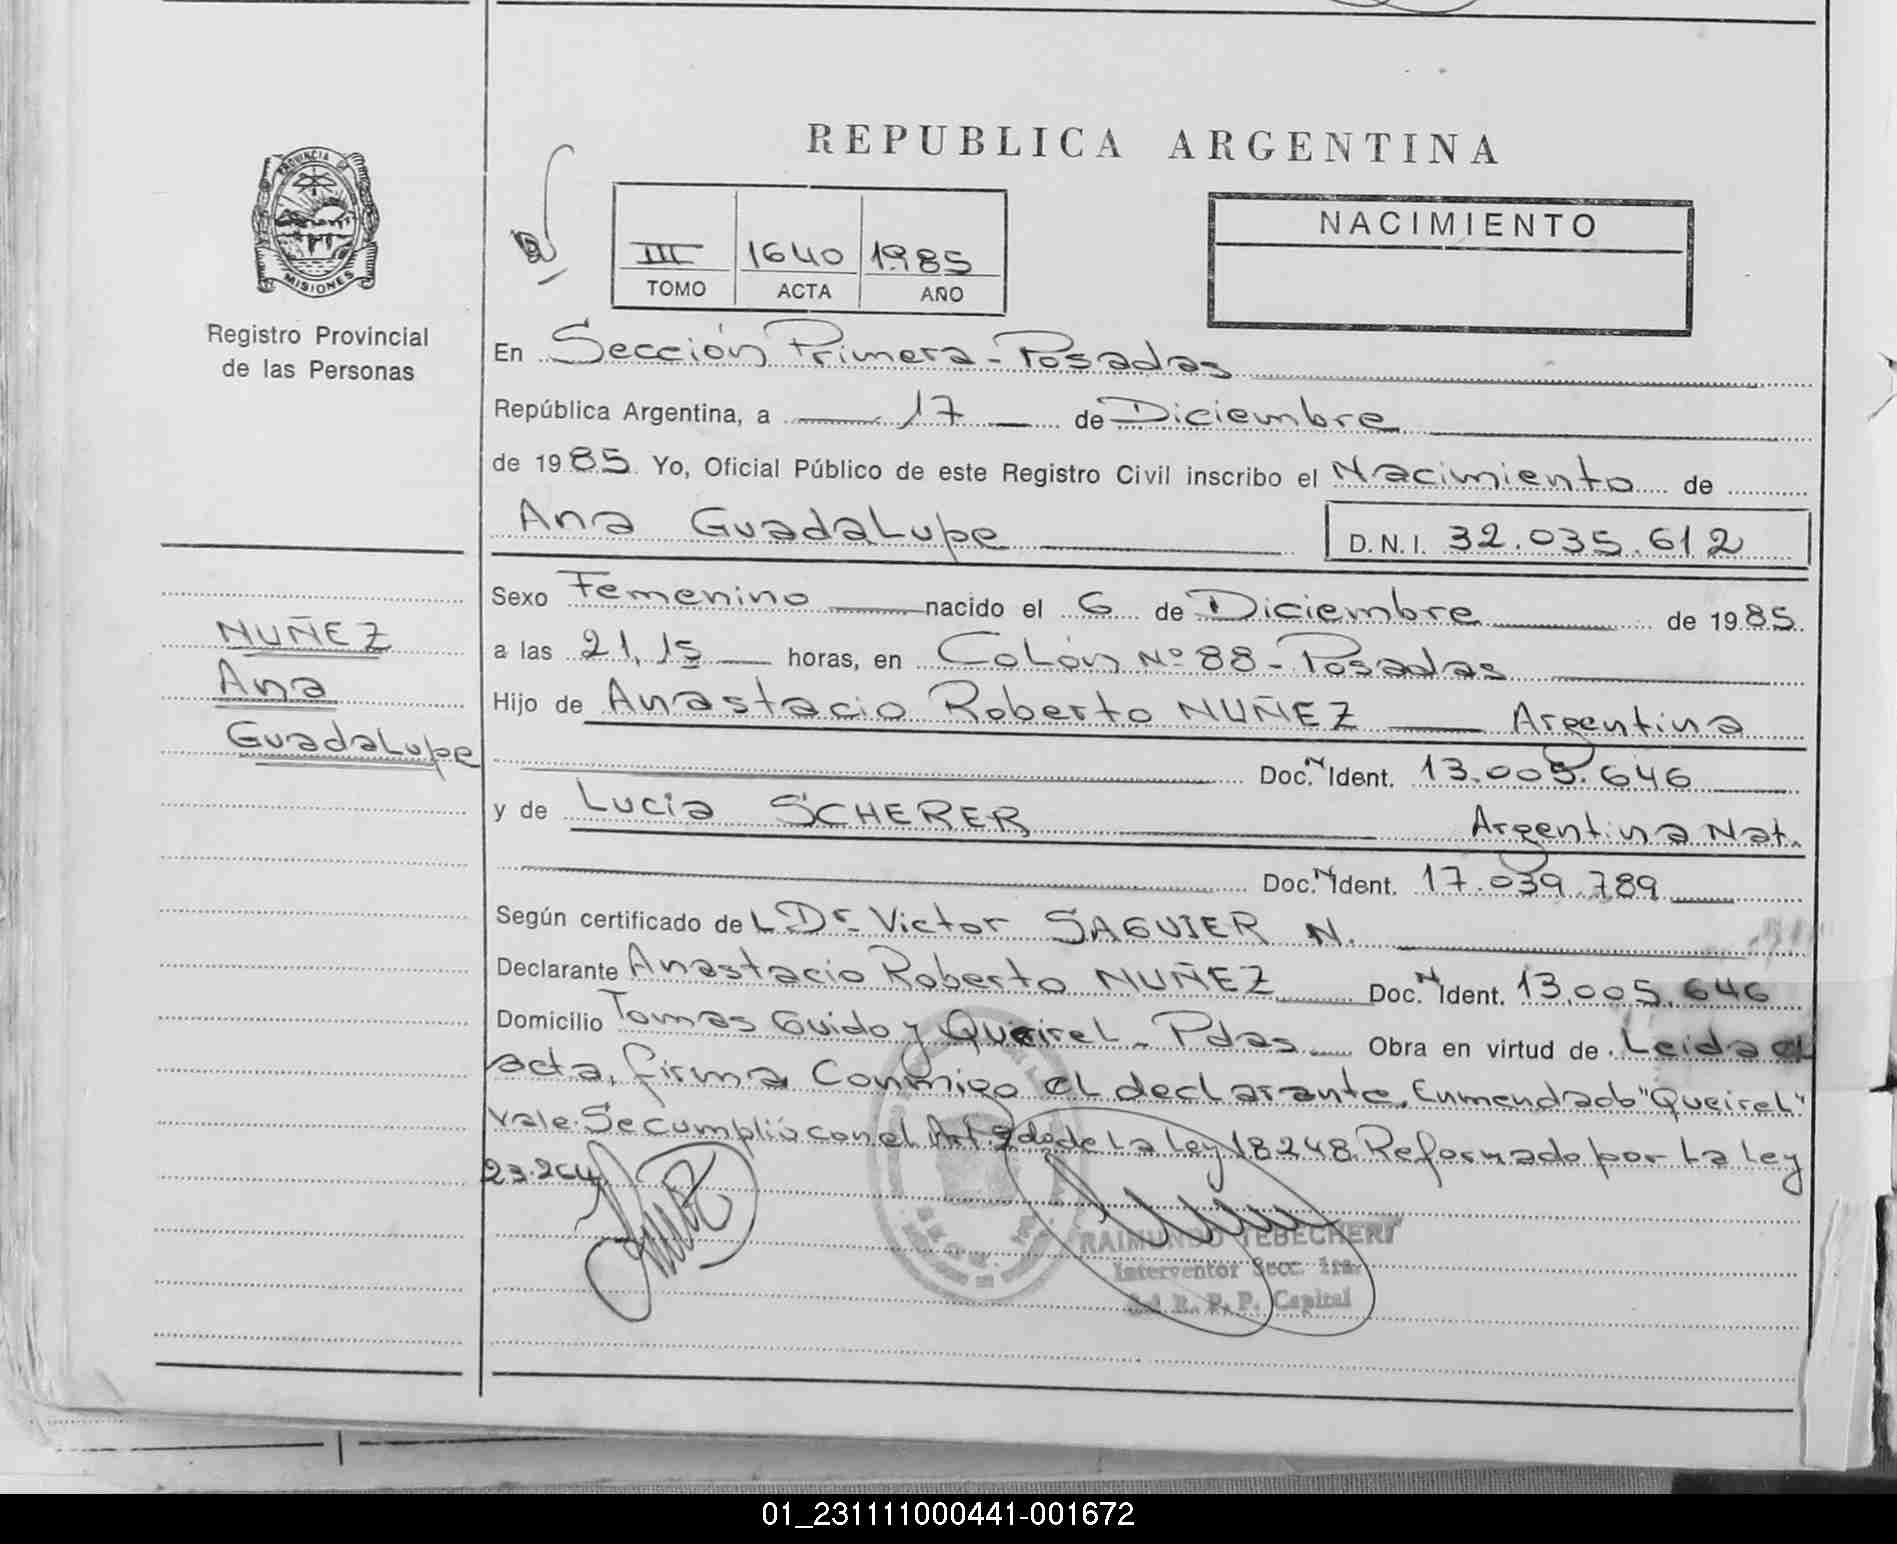 REPUBLICA ARGENTINA
PROVINCIA DE
MISIONES
Registro Provincial
de las Personas
III 1640 1985
TOMO ACTA AÑO
NACIMIENTO
En Sección Primera - Posadas
República Argentina, a 17 de Diciembre
de 1985. Yo, Oficial Público de este Registro Civil inscribo el Nacimiento de
Ana Guadalupe D.N.I. 32.035.612
NUÑEZ
Ana
Guadalupe
Sexo Femenino nacido el 6 de Diciembre de 1985.
a las 21,15 horas, en Colón Nº 88 - Posadas
Hijo de Anastacio Roberto NUÑEZ Argentina
Doc. N Ident. 13.005.646
y de Lucia SCHERER Argentina Nat.
Doc. N Ident. 17.039.789
Según certificado del Dr. Victor SAGUIER N.
Declarante Anastacio Roberto NUÑEZ Doc. N Ident. 13.005.646
Domicilio Tomas Guido y Queirel - Pdas Obra en virtud de Leida el
acta, firma conmigo el declarante. Enmendado "Queirel"
Vale. Se cumplió con el Art. 2do de la Ley 18248 Reformado por la Ley
23.264
RAIMUNDO TEBECHERI
Interventor Secc. 1ra.
del R. P. P. Capital
01_231111000441-001672